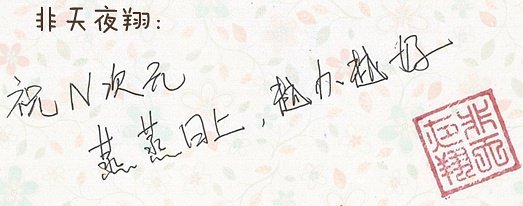 非天夜翔:
祝N次元
蒸蒸日上,越办越好
非天
夜翔